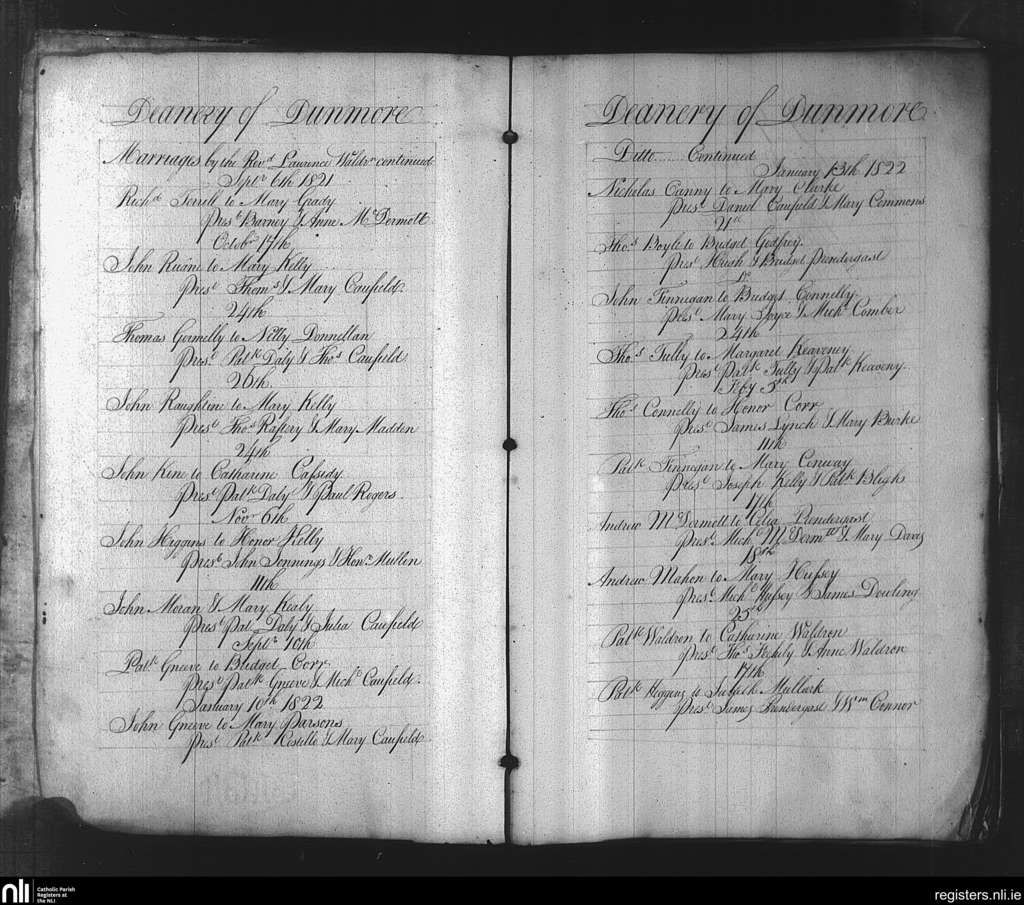 Deanery of Dunmore
Marriages by the Revd Laurence Waldrn continued
Septr 6th 1821
Richd Terrell to Mary Grady
Prest Barney & Anne McDermott
Octobr 17th
John Ruane to Mary Kelly
Prest Thoms & Mary Caufield
24th
Thomas Gormelly to Nelly Donnellan
Prest Patk Daly & Thos Caufield
26th
John Raughtene to Mary Kelly
Prest Thos Raftery & Mary Madden
24th
John Kine to Catharine Cassidy
Prest Patk Daly & Paul Rogers
Novr 6th
John Higgins to Honor Kelly
Prest John Jennings & Honr Mullen
11th
John Moran & Mary Kealy
Prest Pat Daly & Julia Caufield
Septr 10th
Patk Grieve to Bridget Corr
Prest Patk Grieve & Michl Caufield
January 10th 1822
John Greeve to Mary Parsons
Prest Patk Kostello & Mary Caufield
Deanery of Dunmore
Ditto Continued
January 13th 1822
Nicholas Canny to Mary Clarke
Prest Daniel Caufield & Mary Commons
21st
Thos Boyle to Bridget Godfrey
Prest Hugh & Bridget Prendergast
Do
John Finnegan to Bridget Connelly
Prest Mary Joyce & Michl Comber
24th
Thos Tully to Margaret Keaveney
Prest Patk Tully & Patk Keaveny
Feby 5th
Thos Connelly to Honor Corr
Prest James Lynch & Mary Burke
11th
Patk Finnegan to Mary Conway
Prest Joseph Kelly & Patk Bligh
17th
Andrew McDermott to Celia Prendergast
Prest Michl McDermtt & Mary Davis
18th
Andrew Mahon to Mary Hussey
Prest Michl Hussey & James Dowling
25th
Patk Waldron to Catharine Waldron
Prest Thos & Anne Waldron
17th
Patk Higgins to Mullark
Prest James Prendergast & Wm Connor
nli
Catholic Parish
Registers at
the NLI
registers.nli.ie